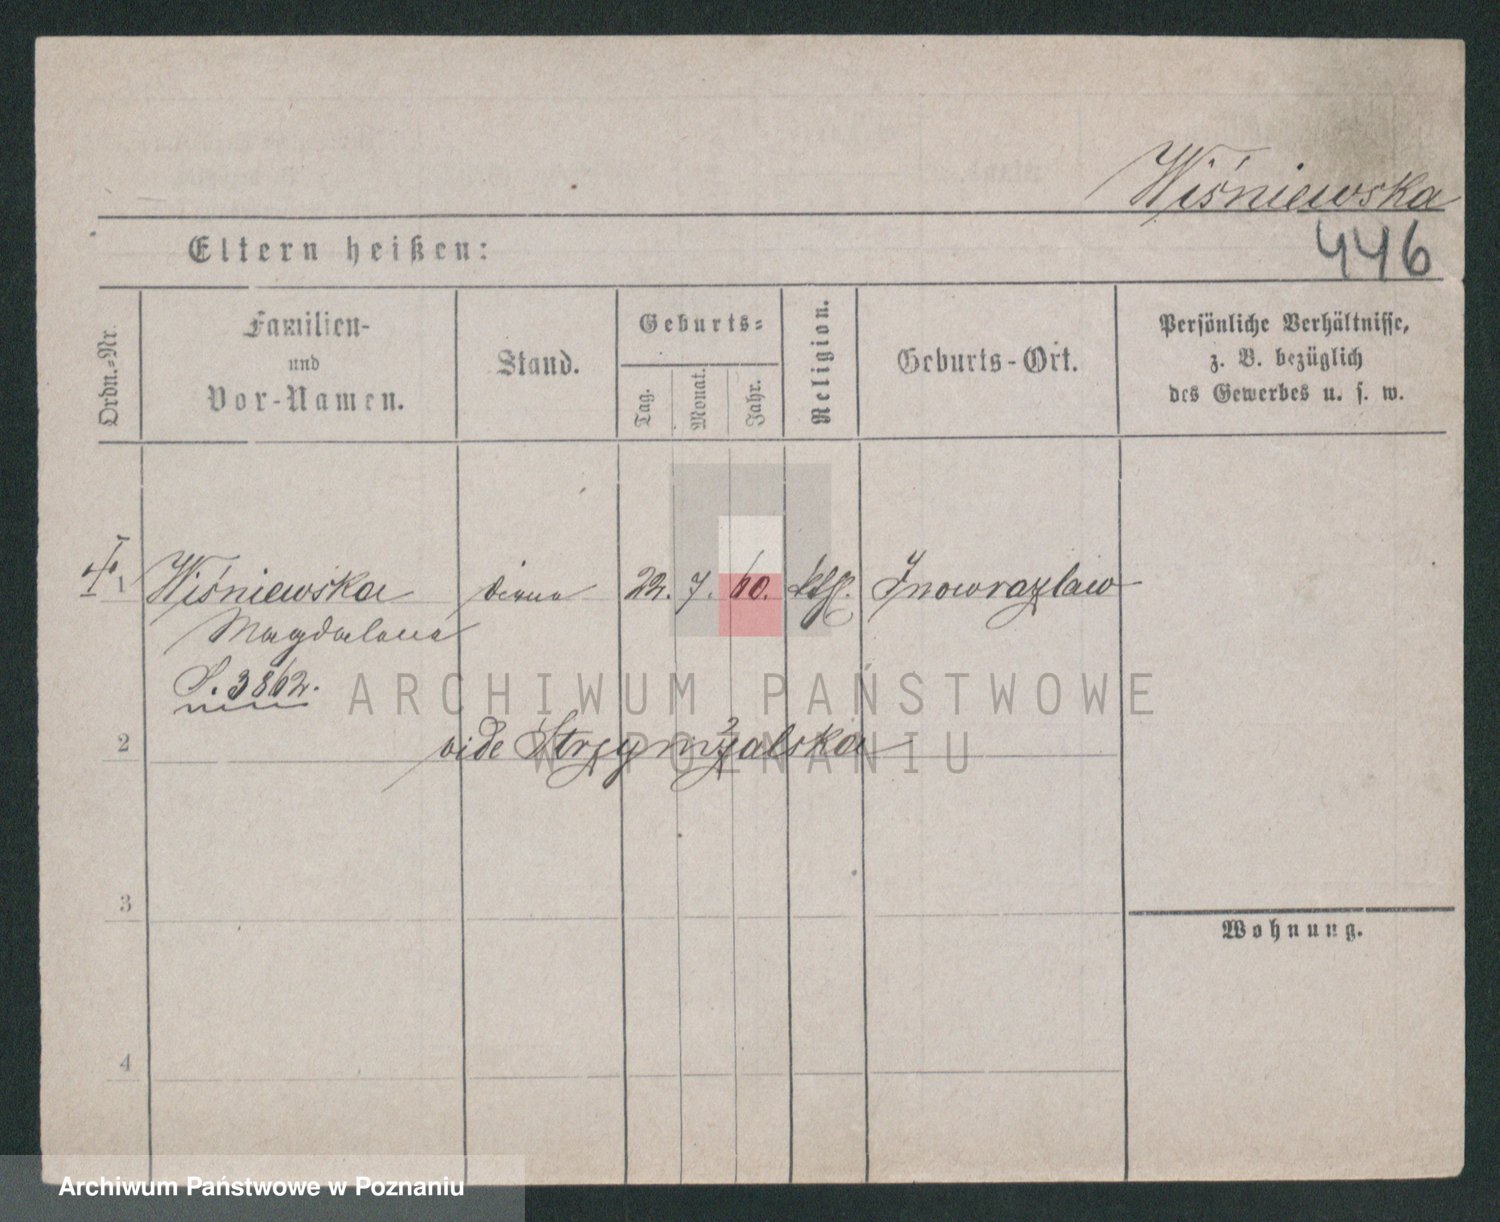 Wiśniewska
446
Eltern heißen:
Ordn.-Nr.
Familien-
und
Vor-Namen.
Stand.
Geburts-
Tag.
Monat.
Jahr.
Religion.
Geburts-Ort.
Persönliche Verhältnisse,
z. B. bezüglich
des Gewerbes u. s. w.
1 Wiśniewska 22. 7. 60. kth. Inowrazlaw
Magdalena
S. 3862.
2 vide Strzymżalska
3
Wohnung.
4
ARCHIWUM PAŃSTWOWE
W POZNANIU
Archiwum Państwowe w Poznaniu